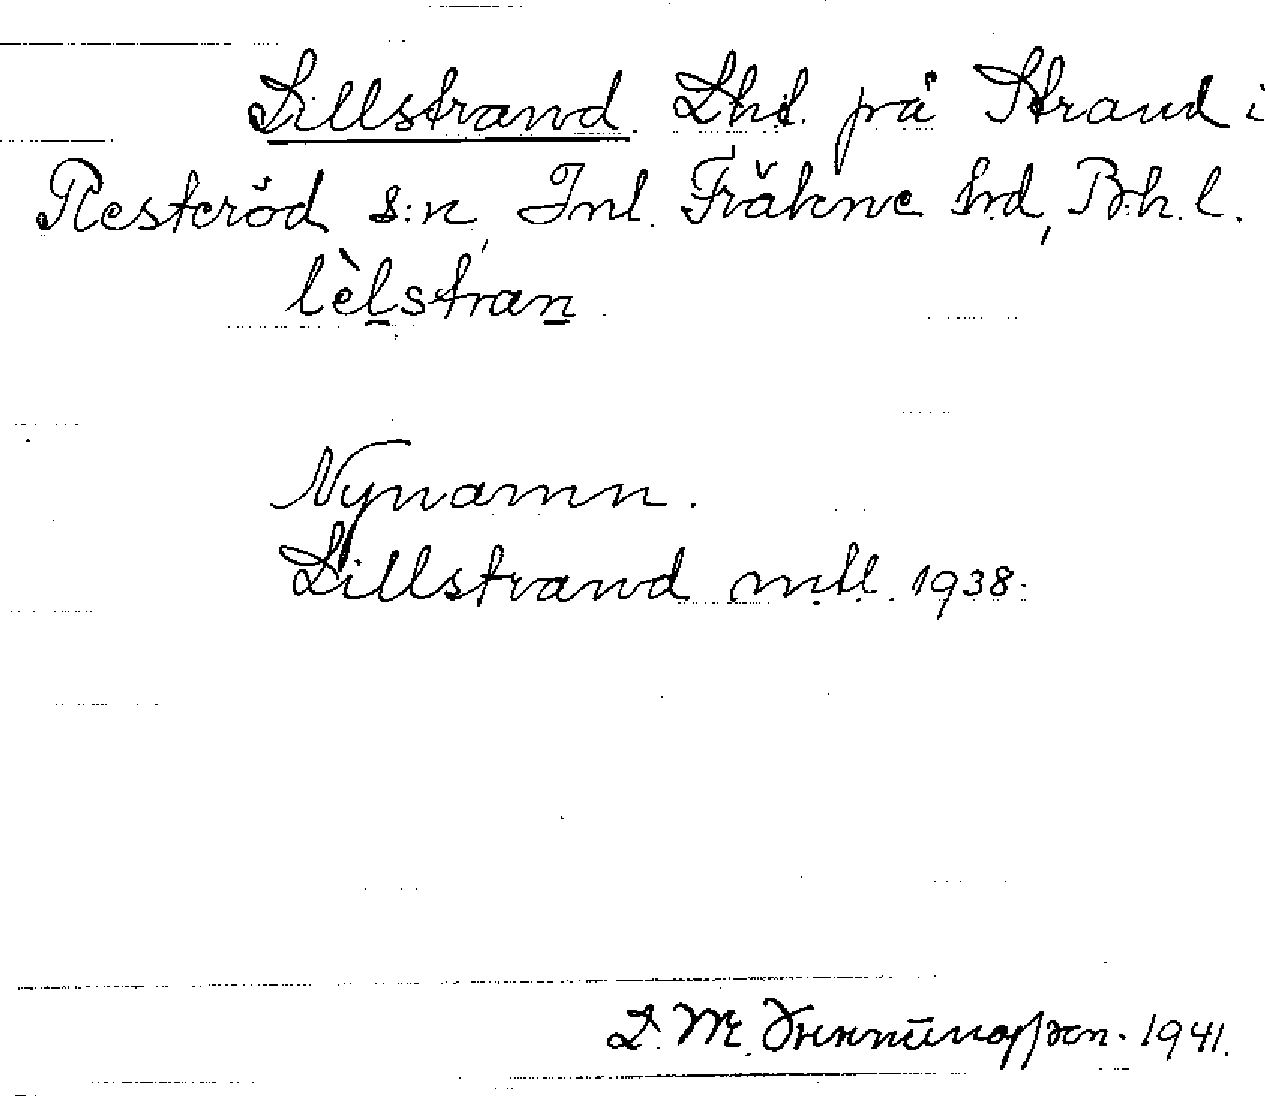 Lillstrand. Lht. på Strand i
Resteröd s:n, Inl. Fräkne hd, Boh. l.
lèlstran.
Nynamn.
Lillstrand mtl. 1938.
D. M. 1941.